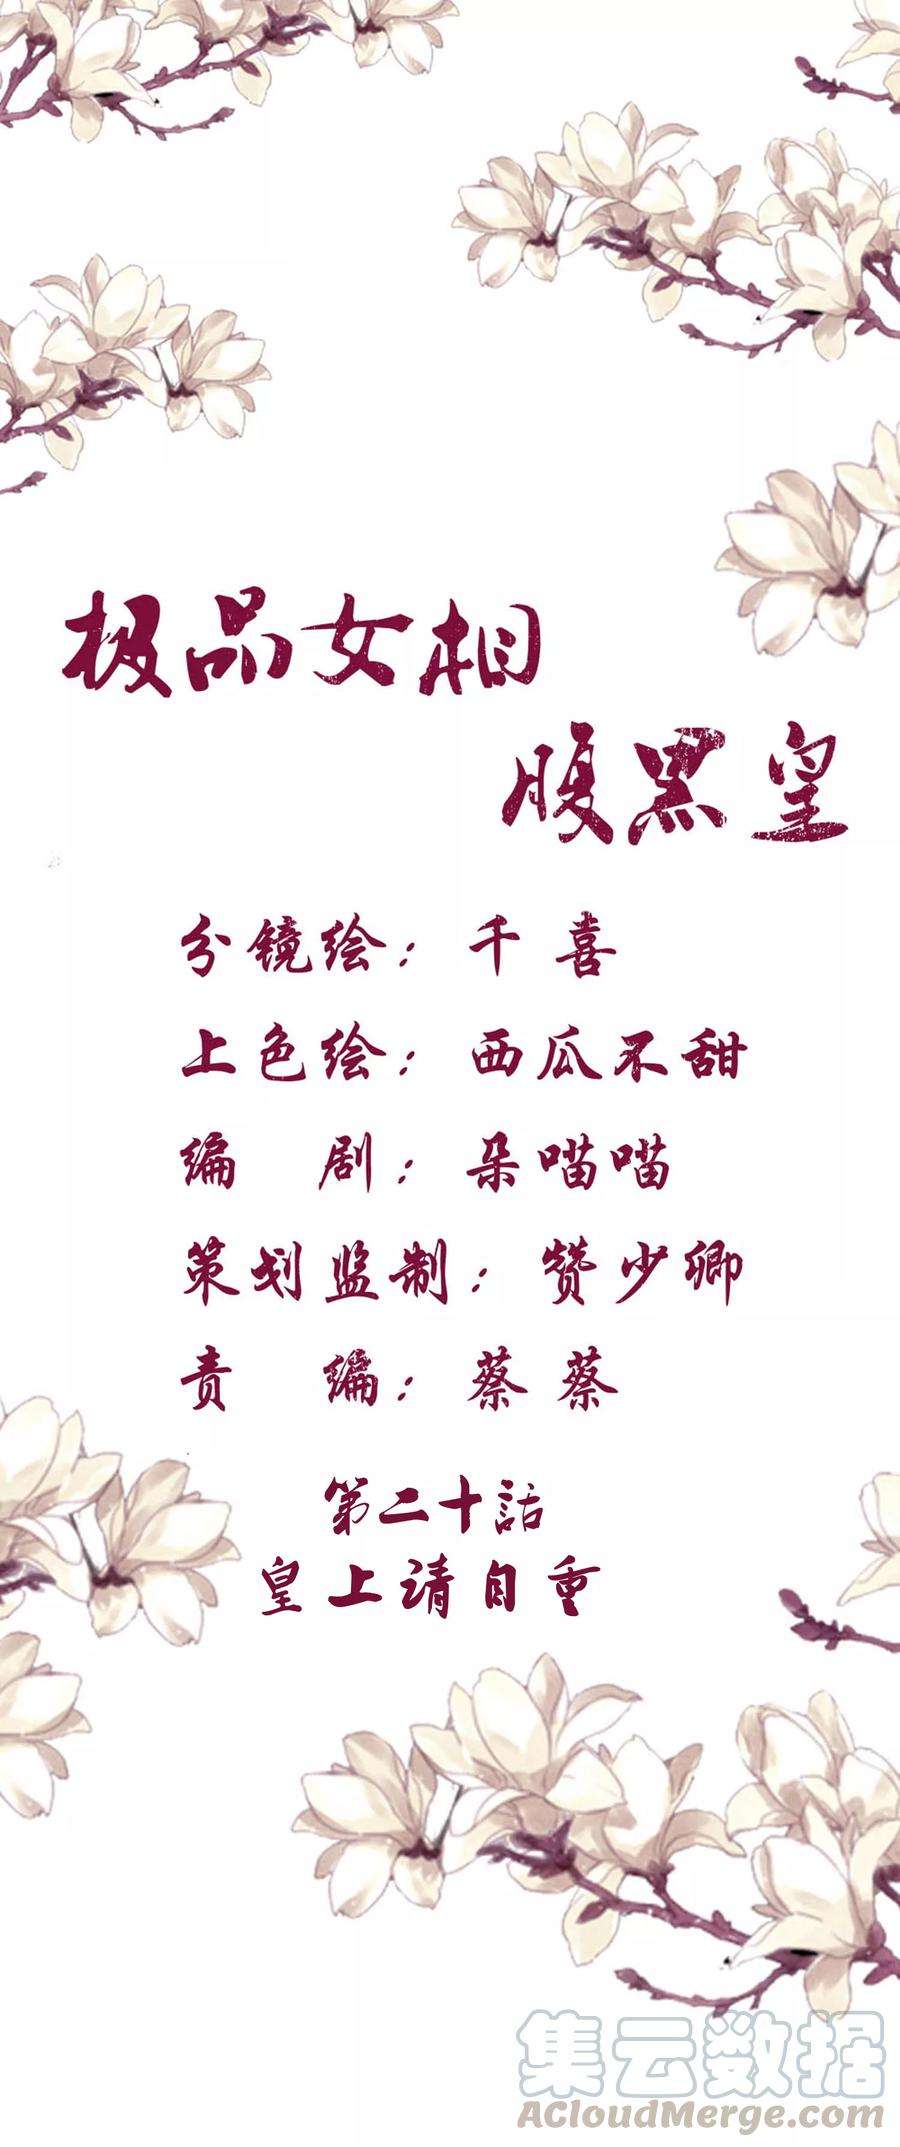 极品女相
腹黑皇
分镜绘：千喜
上色绘：西瓜不甜
编 剧：朵喵喵
策划监制：赞少卿
责 编：蔡蔡
第二十話
皇上请自重
集云数据
ACloudMerge.com